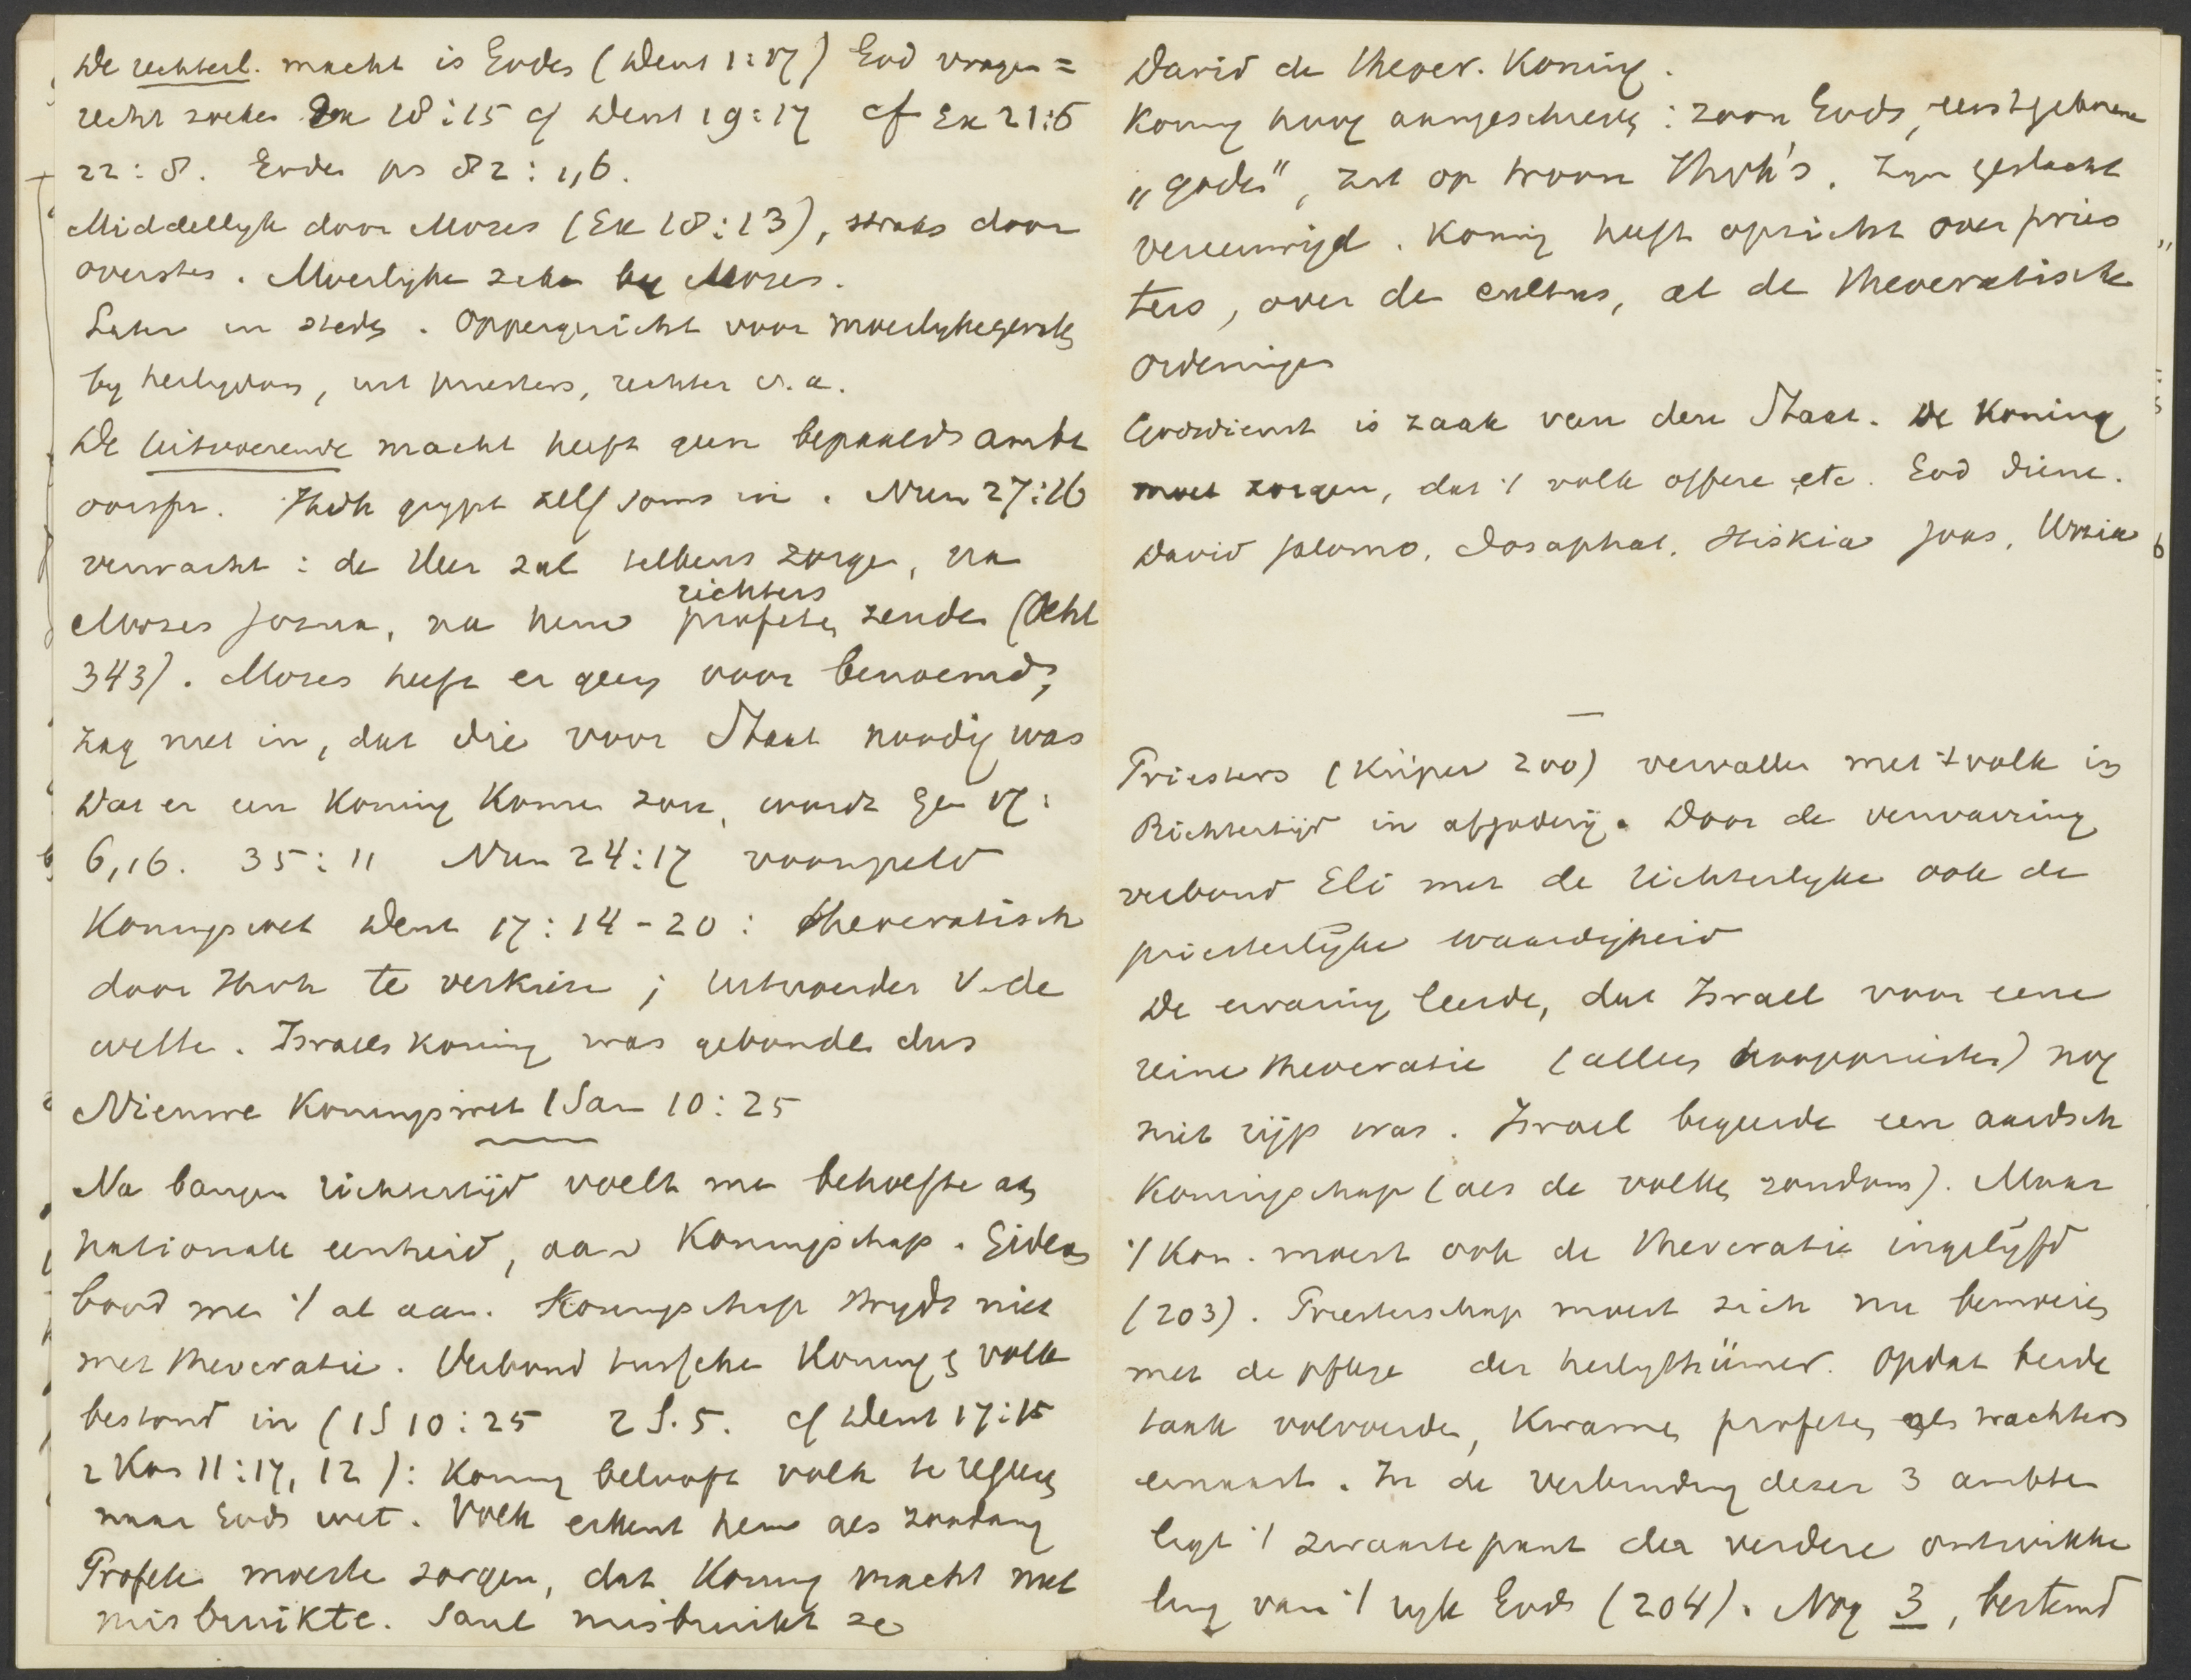 De rechterl. macht is Godes (Deut 1:17) God vragen =
recht zoeken Ex 18:15 cf Deut 19:17 cf Ex 21:6
22:8. Goden ps 82:1,6.
Middellyk door Mozes (Ex 18:13), straks door
oversten. Moeilyke zaken by Mozes.
Later in steden. Oppergericht voor moeilyke gevallen
by heiligdom, uit priesters, rechter o.a.
De uitvoerende macht heeft geen bepaald ambt
oorspr. Jhvh grypt zelf soms in. Num 27:16
verwacht: de Heer zal telkens zorgen, na
Mozes Jozua, na hem profeten richters zenden (Oehl
343). Mozes heeft er geen voor benoemd,
zag niet in, dat die voor Staat noodig was
Dat er een Koning komen zou, wordt Gen 17:
6,16. 35:11 Num 24:17 voorspeld
Koningswet Deut 17:14-20: theocratisch
door Jhvh te verkiezen; uitvoerder v. de
wetten. Israels koning was gebonden dus
Nieuwe Koningswet 1 Sam 10:25
Na bangen richtertijd voelt men behoefte aan
nationale eenheid, aan Koningschap. Gideon
bood men 't al aan. Koningschap strydt niet
met theocratie. Verbond tusschen Koning en volk
bestond in (1 S 10:25 2 S. 5. cf Deut 17:15
2 Kon 11:17, 12): Koning belooft volk te regeeren
naar Gods wet. Volk erkent hem als zoodanig
Profeten moesten zorgen, dat Koning macht niet
misbruikte. Saul misbruikt ze
David de theocr. Koning.
Koning hoog aangeschreven: zoon Gods, eerstgeborene
„goden", zit op troon Jhvh's. Zyn geslacht
vereeuwigd. Koning heeft opzicht over pries
ters, over de cultus, al de theocratische
ordeningen
Godsdienst is zaak van den Staat. De Koning
moet zorgen, dat 't volk offere etc. God diene.
David Salomo, Josaphat, Hiskia Joas, Uzzia
Priesters (Küper 200) vervallen met 't volk in
Richtertijd in afgoderij. Door de verwarring
verbond Eli met de richterlyke ook de
priesterlijke waardigheid
De ervaring leerde, dat Israel voor eene
reine theocratie (alleen hoogepriester) nog
niet rijp was. Israel begeerde een aardsch
Koningschap (als de volken rondom). Maar
't Kon. moest ook de theocratie ingelijfd
(203). Priesterschap moest zich nu bemoeien
met de pflege der heiligthümer. Opdat beide
taak volvoerden, kwamen profeten als wachters
ernaast. In de verbinding dezer 3 ambten
ligt 't zwaartepunt der verdere ontwikke
ling van 't ryk Gods (204). Nog 3, bestond